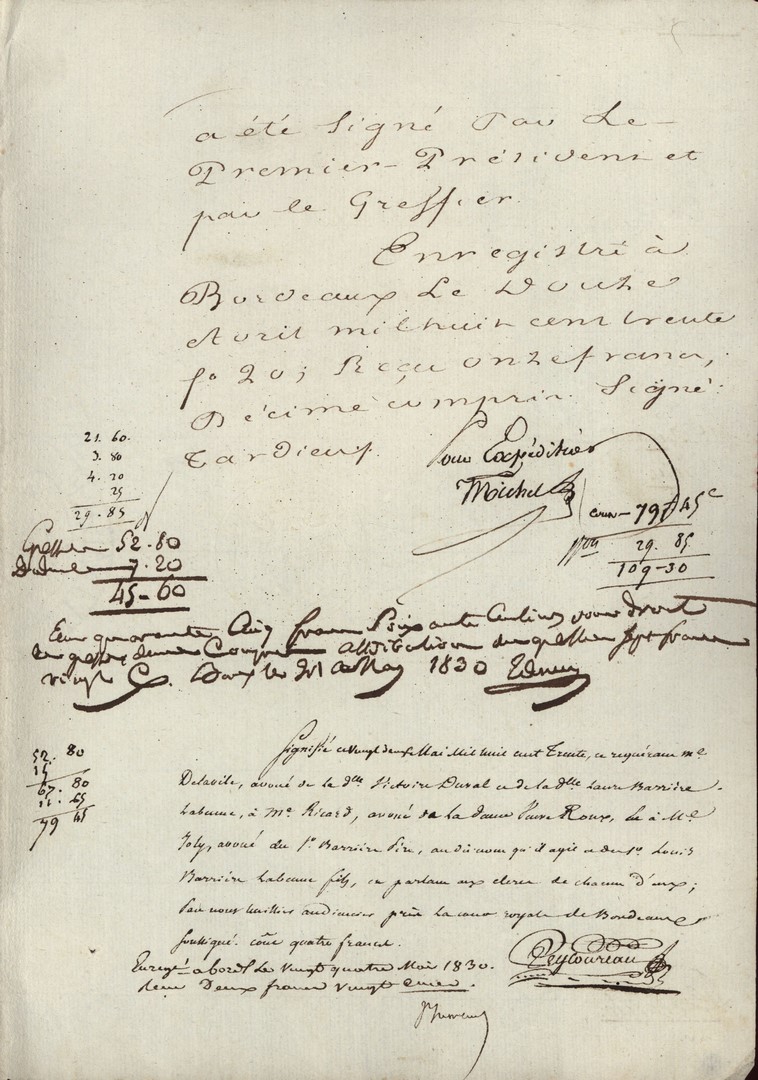 a été Signé Par Le
Premier Président et
par le Greffier.
Enregistré à
Bordeaux Le Douze
Avril mil huit cent trente
fo 20; Reçu onze francs,
Décime compris. Signé:
Tardieu.
21. 60.
3. 80
4. 20
25
29. 85
Pour Expédition
Michel
79 45c
29. 85
109-30
Greffier 52.80
7.20
45-60
quarante Cinq francs Soixante Centimes pour droit
de greffe, Compris attribution du greffier Sept francs
vingt C. Bordx le May 1830
52. 80
67. 80
11. 65
79 45
Signifié ce vingt deux Mai Mil huit cent Trente, ce requérant me
Delavile, avoué de la dlle Victoire Duval et de la dlle Laure Barrière
Labeume, à Me Ricard, avoué de la dame Roux, & à Me
Joly, avoué du Sr Barrière Père, au dit nom qu'il agit et du Sr Louis
Barrière Labeume fils, en parlant aux clercs de chacun d'eux;
Par nous huissier audiencier près la cour royale de Bordeaux
soussigné. Coût quatre francs.
Peytoureau
Enregé a bordx Le vingt quatre Mai 1830.
Deux francs vingt